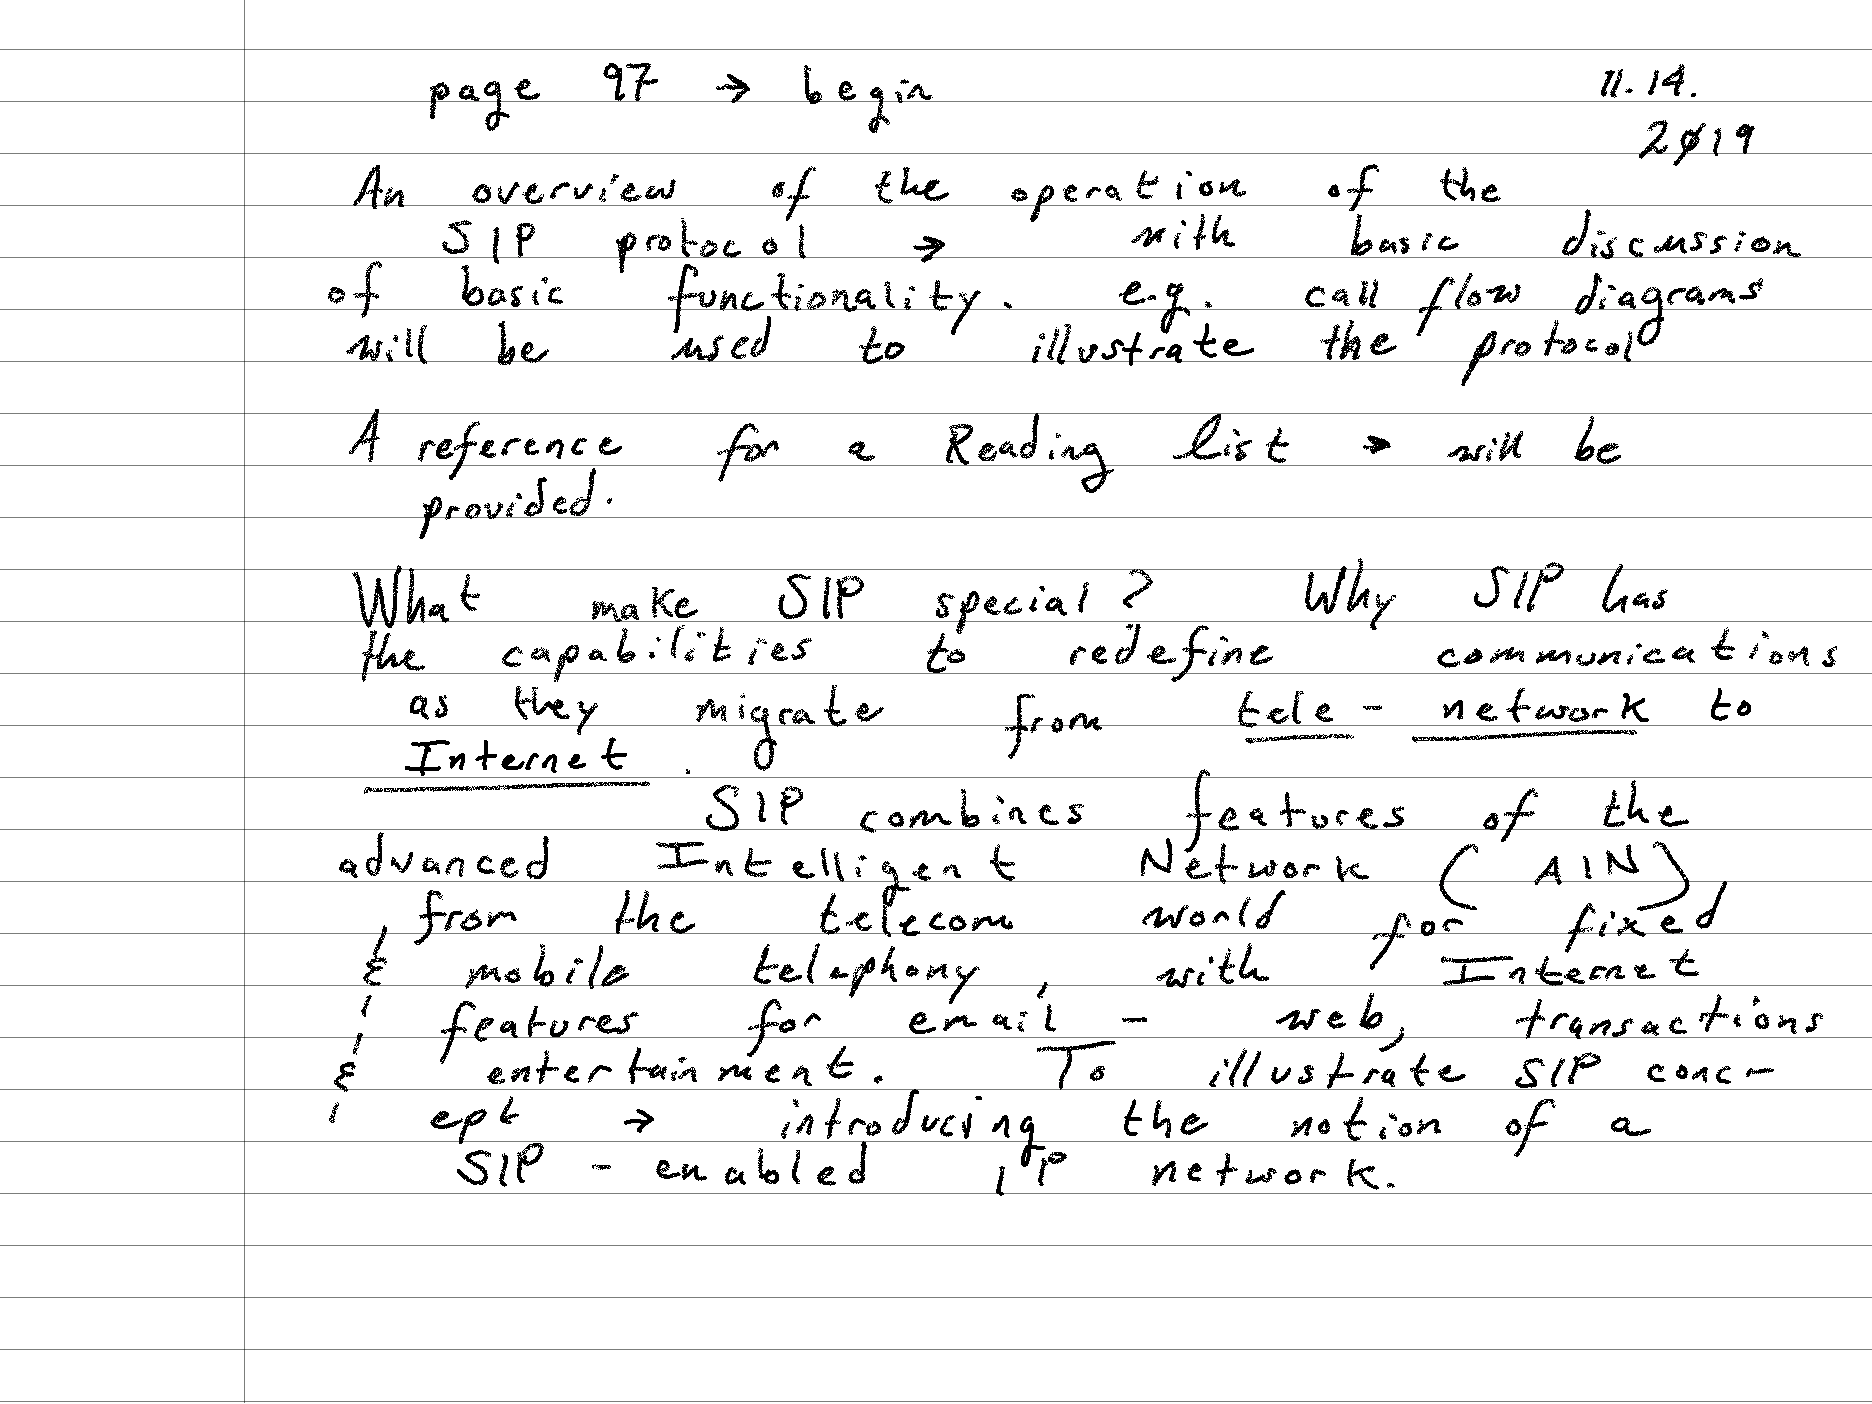 page 97 → begin
11.14.
2019
An overview of the operation of the
SIP protocol → with basic discussion
of basic functionality. e.g. call flow diagrams
will be used to illustrate the protocol
A reference for a Reading list → will be
provided.
What make SIP special? Why SIP has
the capabilities to redefine communications
as they migrate from tele - network to
Internet.
SIP combines features of the
advanced Intelligent Network (AIN)
from the telecom world for fixed
& mobile telephony, with Internet
features for email - web, transactions
& entertainment. To illustrate SIP conc-
ept → introducing the notion of a
SIP - enabled IP network.